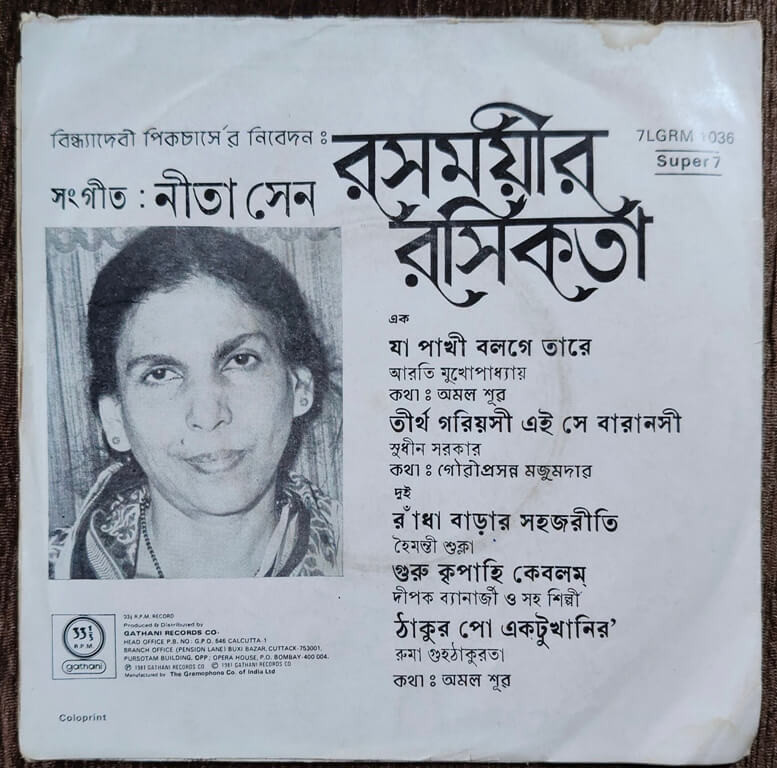 বিন্ধ্যাদেবী পিকচার্সের নিবেদন ঃ
রসময়ীর
রসিকতা
7LGRM 1036
Super 7
সংগীত : নীতা সেন
এক
যা পাখী বলগে তারে
আরতি মুখোপাধ্যায়
কথা ঃ অমল শূর
তীর্থ গরিয়সী এই সে বারানসী
সুধীন সরকার
কথা ঃ গৌরীপ্রসন্ন মজুমদার
দুই
রাঁধা বাড়ার সহজরীতি
হৈমন্তী শুক্লা
গুরু কৃপাহি কেবলম্
দীপক ব্যানার্জী ও সহ শিল্পী
ঠাকুর পো একটুখানির'
রুমা গুহঠাকুরতা
কথা ঃ অমল শূর
33 1/3
R.P.M.
gathani
33⅓ R.P.M. RECORD
Produced & Distributed by
GATHANI RECORDS CO.
HEAD OFFICE P.B. NO: G.P.O. 646 CALCUTTA-1
BRANCH OFFICE (PENSION LANE) BUXI BAZAR, CUTTACK-753001,
PURSOTAM BUILDING, OPP; OPERA HOUSE, P.O. BOMBAY-400 004.
Ⓟ 1981 GATHANI RECORDS CO © 1981 GATHANI RECORDS CO.
Manufactured by The Gramophone Co. of India Ltd
Coloprint